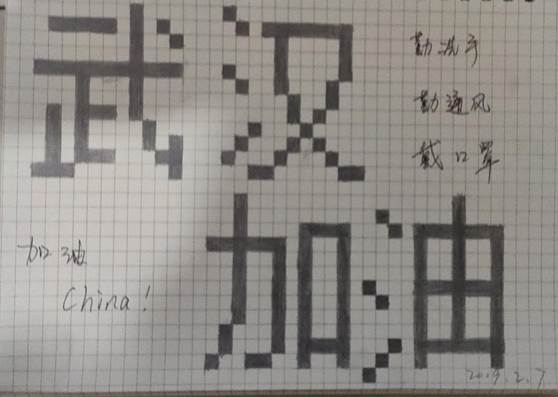 武汉
勤洗手
勤通风
戴口罩
加油
加油
China!
2019.2.7